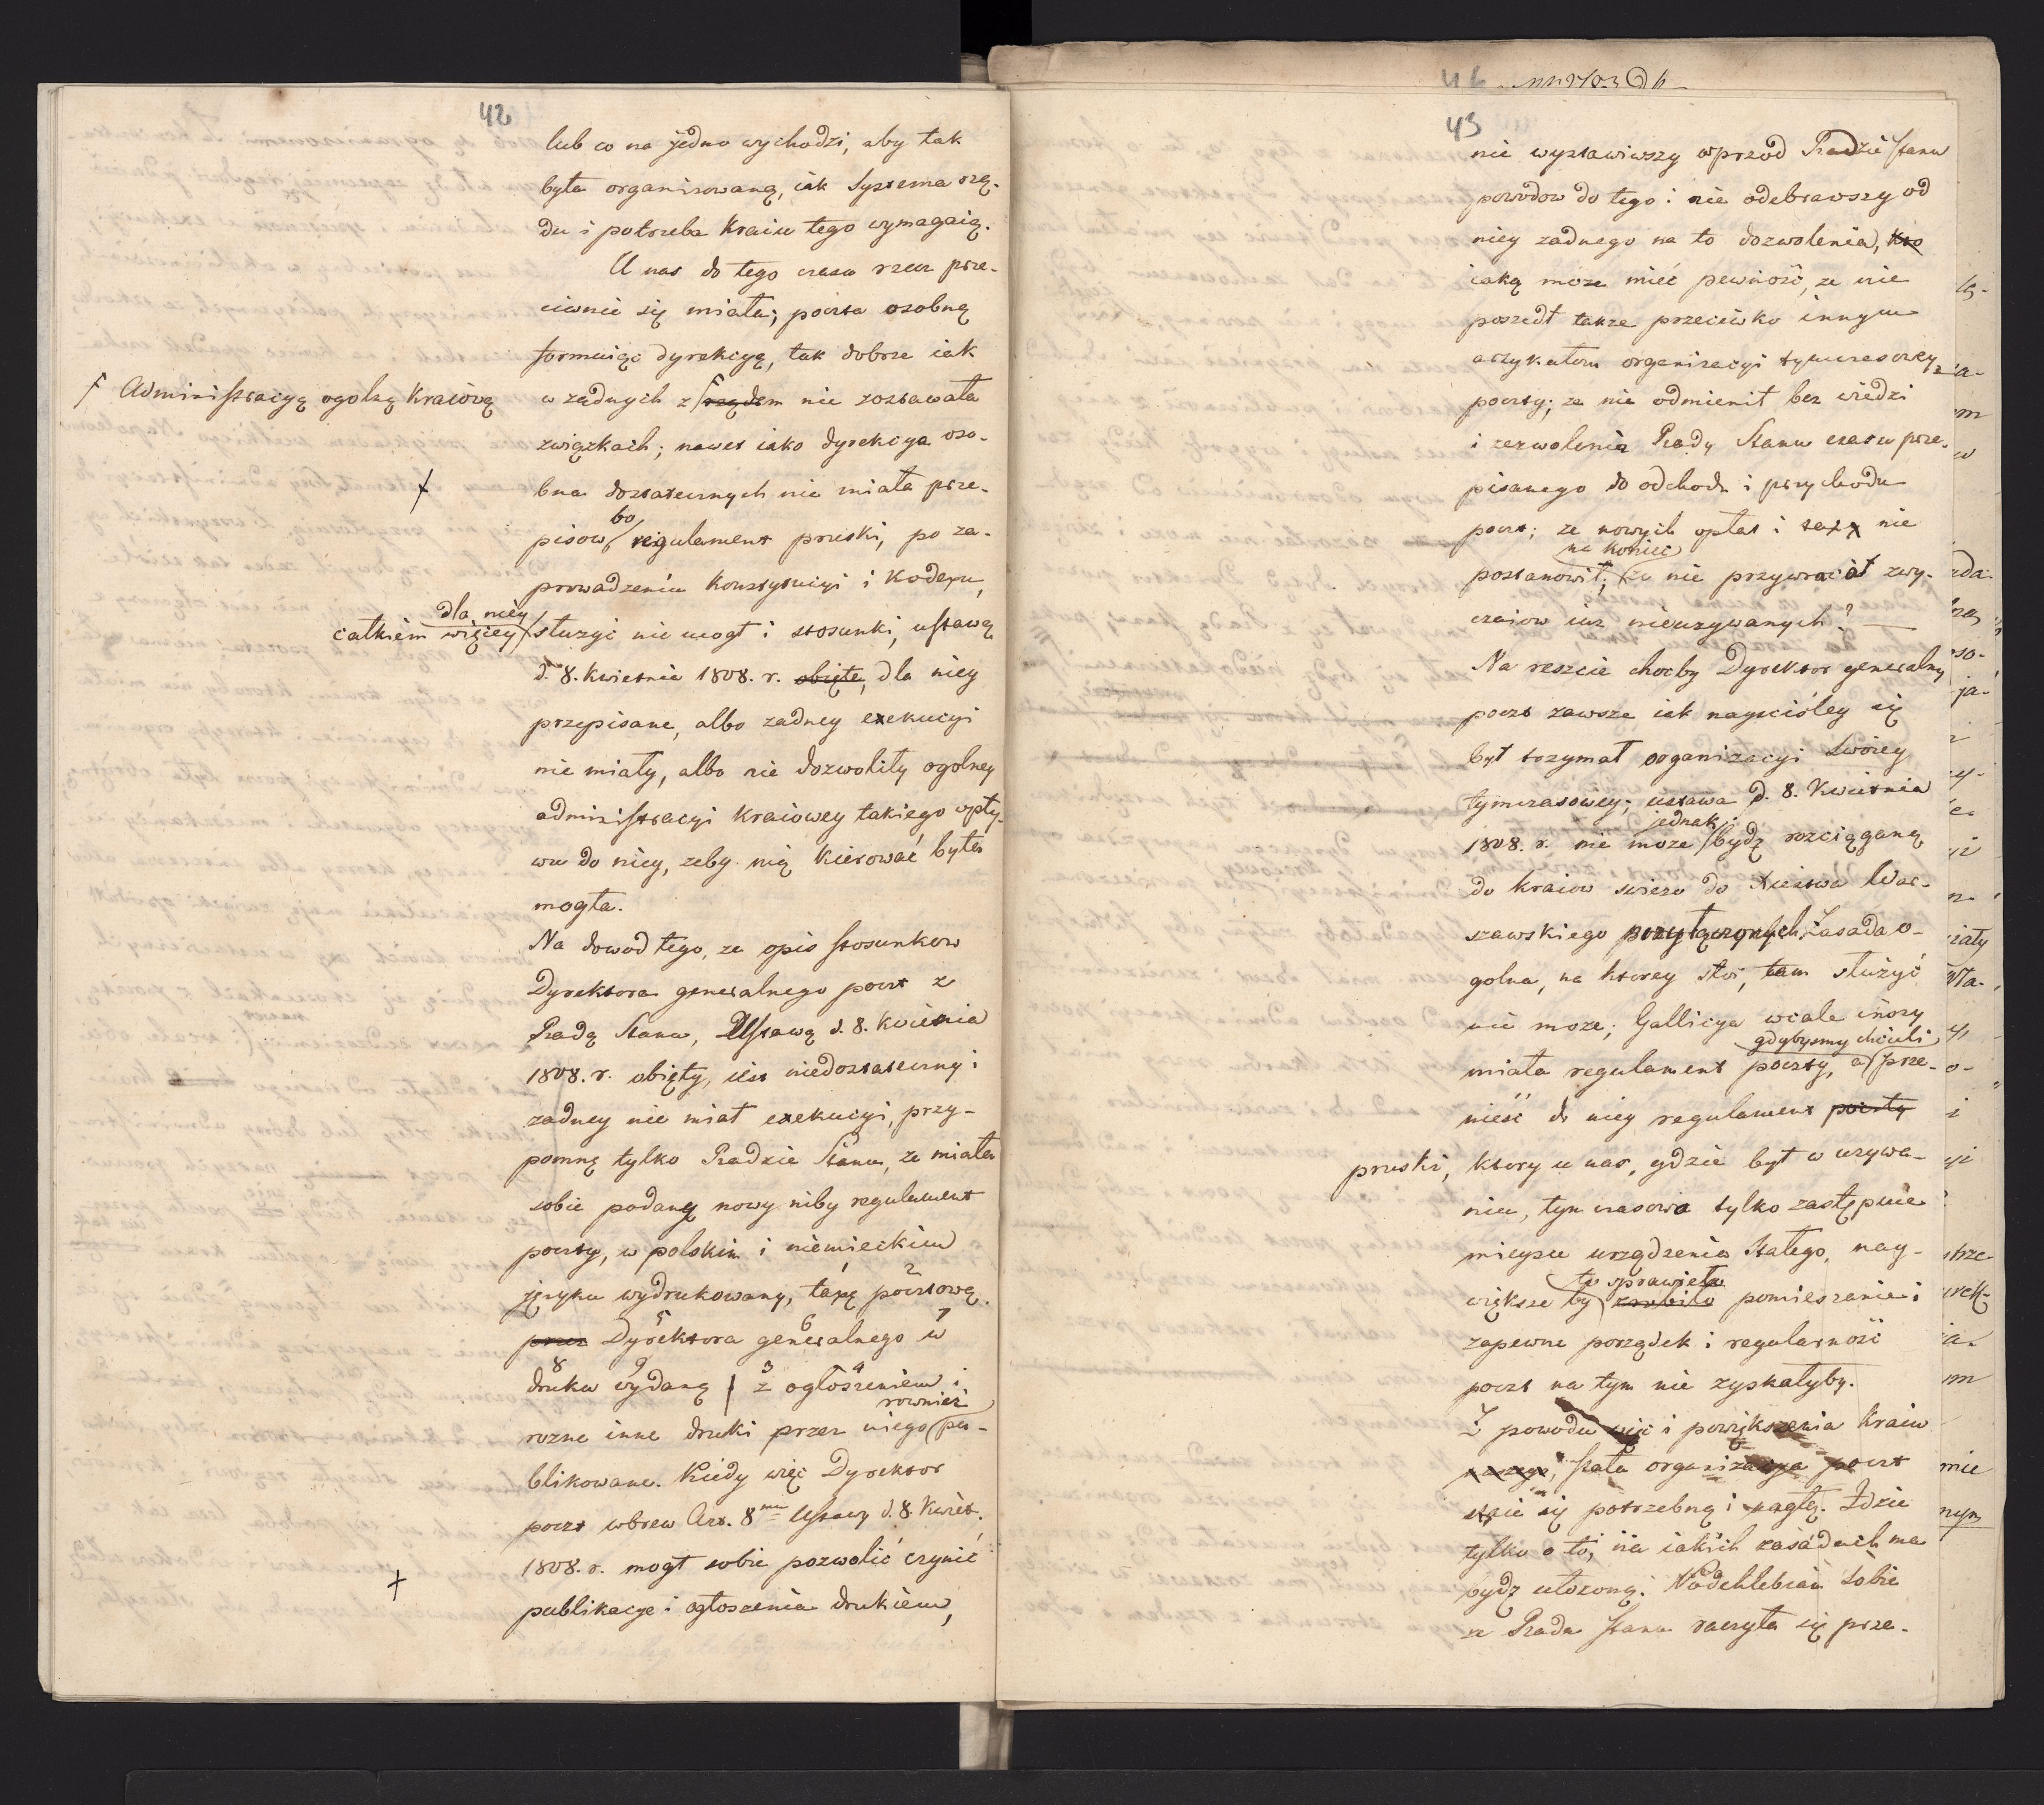 42
lub co na jedno wychodzi, aby tak
była organizowaną, iak Systema rzą-
du i potrzeba Kraiu tego wymagaią.
U nas do tego czasu rzecz prze-
ciwnie się miała; poczta osobną
formuiąc dyrekcyą, tak dobrze iak
w żadnych z rządem nie zostawała
Г Administracyą ogolną Kraiową
związkach; nawet iako dyrekcya oso-
bna dostatecznych nie miała prze-
bo
pisow regulament pruski, po za-
prowadzeniu Konstytucyi i Kodexu,
dla niey
całkiem więcey służyć nie mogł i stosunki, ustawą
d. 8. Kwietnia 1808. r. obięte, dla niey
przepisane, albo zadney exekucyi
nie miały, albo nie dozwoliły ogolney
administracyi Kraiowey takiego wpły-
wu do niey, zeby nią Kierować była
mogła.
Na dowod tego, ze opis stosunkow
Dyrektora generalnego poczt z
Radą Stanu, Ustawą d. 8. Kwietnia
1808. r. obięty, iest niedostateczny i
zadney nie miał exekucyi, przy-
pomnę tylko Radzie Stanu, ze miała
sobie podany nowy niby regulament
poczty, w polskim i niemieckim
2
języku wydrukowany, taxę pocztową
5 6 7
przez Dyrektora generalnego w
8 9 3 4
druku wydaną z ogłoszeniem i
rownież
rozne inne druki przez niego pu-
blikowane. Kiedy więc Dyrektor
poczt wbrew Art. 8 Ustawy d. 8. Kwiet.
1808. r. mogł sobie pozwolić czynić
publikacye i ogłoszenia drukiem,
43
nie wystawiwszy wprzod Radzie Stanu
powodow do tego i nie odebrawszy od
niey zadnego na to dozwolenia, kto
iaką moze mieć pewność, ze nie
poszedł takze przeciwko innym
artykułom organizacyi tymczasowey
poczty; ze nie odmienił bez wiedzi
i zezwolenia Rady Stanu czasu prze-
pisanego do odchodu i przychodu
poczt; ze nowych opłat i taxy nie
na koniec
postanowił; ze nie przywracał zwy-
czaiow iuz nieuzywanych?
Na reszcie choćby Dyrektor generalny
poczt zawsze iak nayściśley się
był trzymał organizacyi swoiey
tymczasowey; ustawa d. 8. Kwietnia
jednak
1808. r. nie moze bydź rozciąganą
do kraiow swiezo do Xięstwa War-
szawskiego przyłączonych. Zasada o-
golna, na ktorey stoi, tam służyć
nie moze; Gallicya wcale inszy
gdybysmy chcieli
miała regulament poczty, a prze-
nieść do niey regulament poczty
pruski, ktory u nas, gdzie był w uzywa-
niu, tym czasowo tylko zastępuie
mieysce urządzenia Stałego, nay-
to sprawiło
większe by zrobiło pomieszanie i
zapewne porządek i regularność
poczt na tym nie zyskałyby.
Z powodu więc i powiększenia Kraiu
naszego, stała organizacya poczt
staie się potrzebną i nagłą. Idzie
tylko o to, na iakich zasadach ma
bydz ułozoną. Podchlebiam sobie
ze Rada Stanu raczyła się prze-